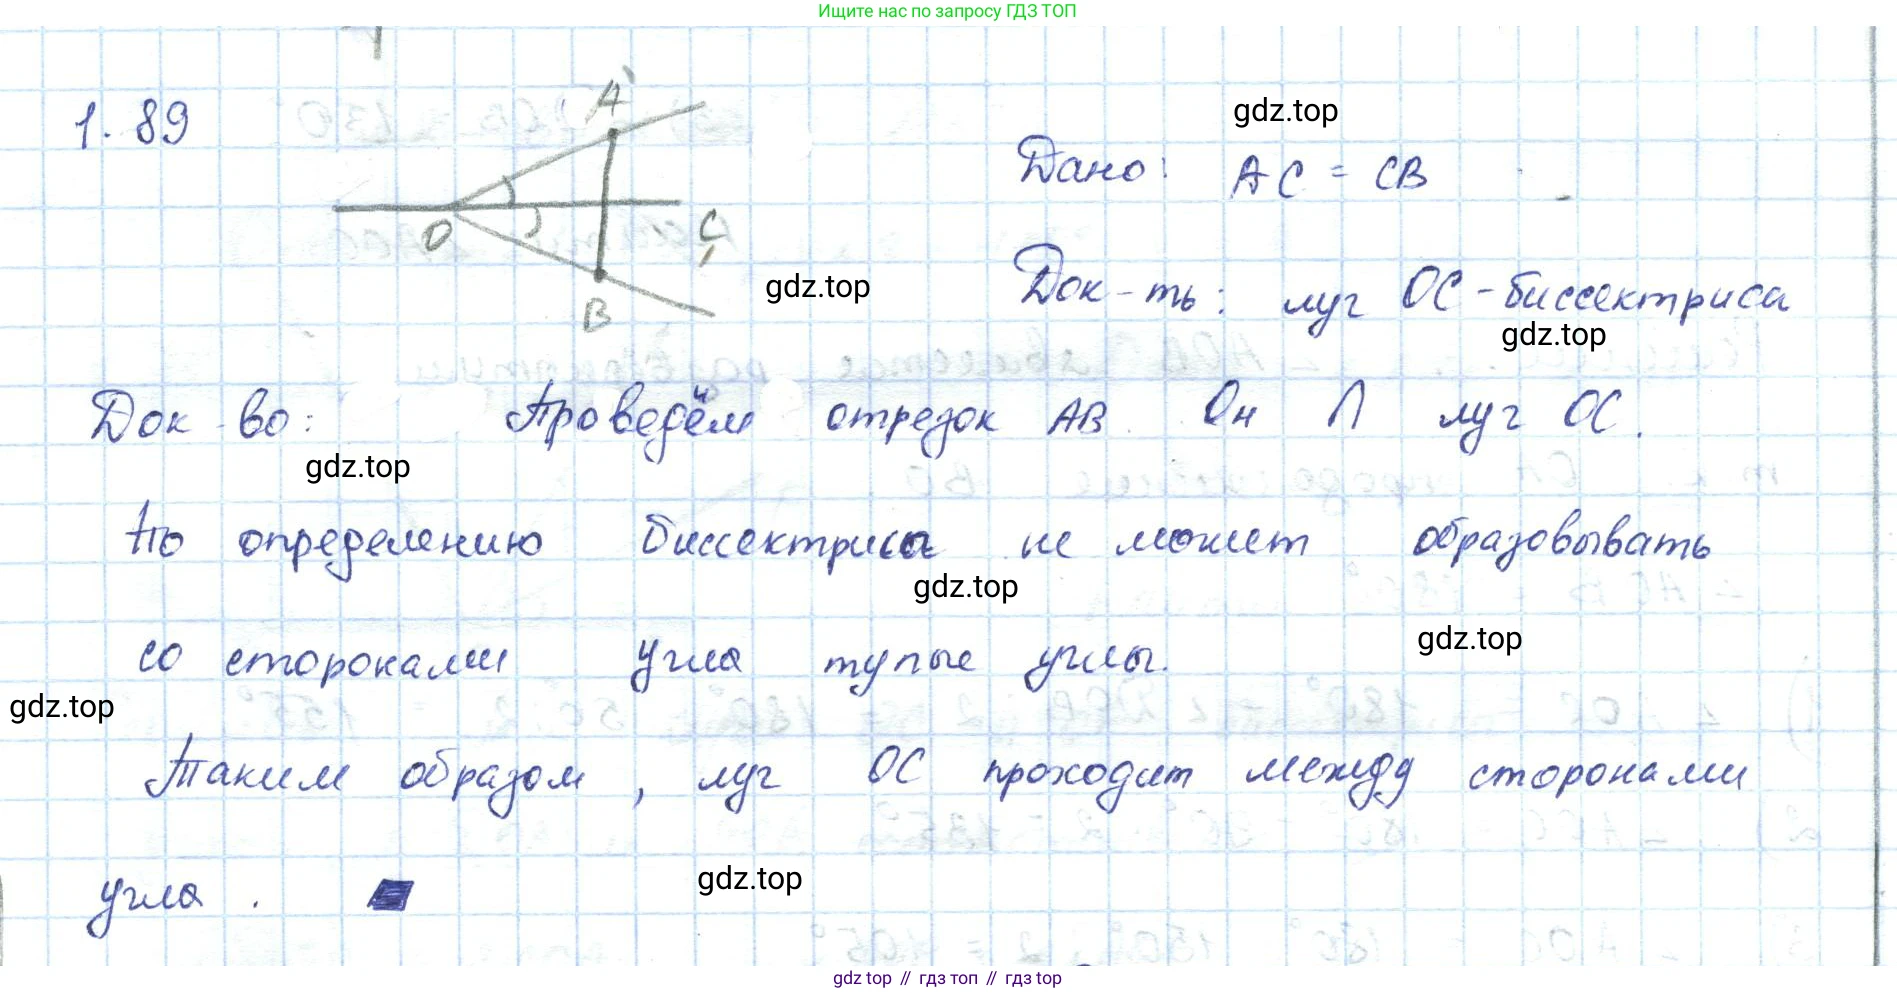 Ищите нас по запросу ГДЗ ТОП
1. 89
A
O
C
B
gdz.top
Дано: AC = CB
gdz.top
Док-ть: луч OC - биссектриса
gdz.top
Док-во: Проведём отрезок AB. Он ∩ луч OC.
gdz.top
По определению биссектриса не может образовывать
gdz.top
со сторонами угла тупые углы.
gdz.top
gdz.top
Таким образом, луч OC проходит между сторонами
угла.
gdz.top
gdz top // гдз топ // гдз top